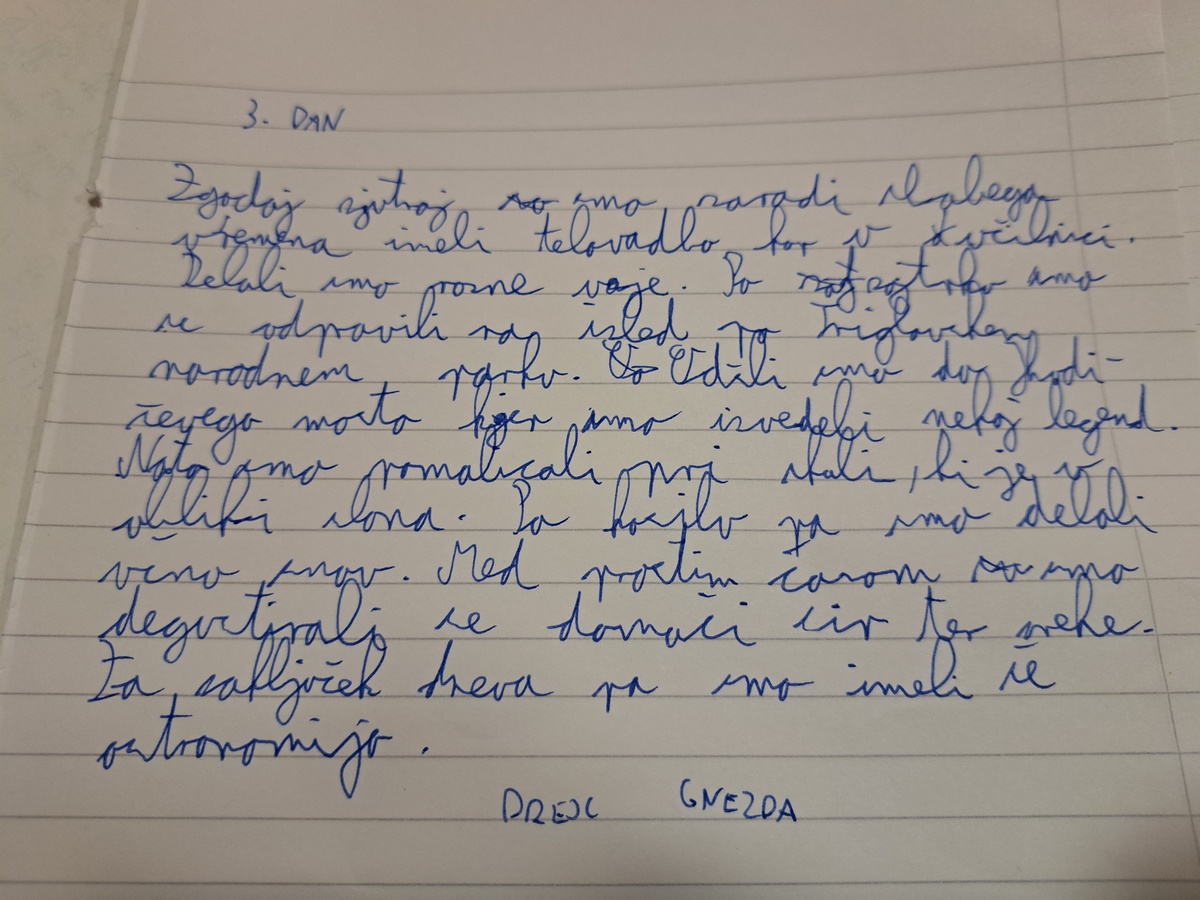 3. DAN
Zgodaj zjutraj smo zaradi slabega
vremena imeli telovadbo kar v učilnici.
Delali smo razne vaje. Po zajtrku smo
se odpravili na izlet po Triglavskem
narodnem parku. Odšli smo do Hudi-
čevega mosta kjer smo izvedeli nekaj legend.
Nato smo pomalicali pri skali, ki je v
obliki slona. Po kosilu pa smo delali
vrsno snov. Med prostim časom smo
degustirali še domači sir ter mehe.
Za zaključek dneva pa smo imeli še
astronomijo.
DREJC GNEZDA